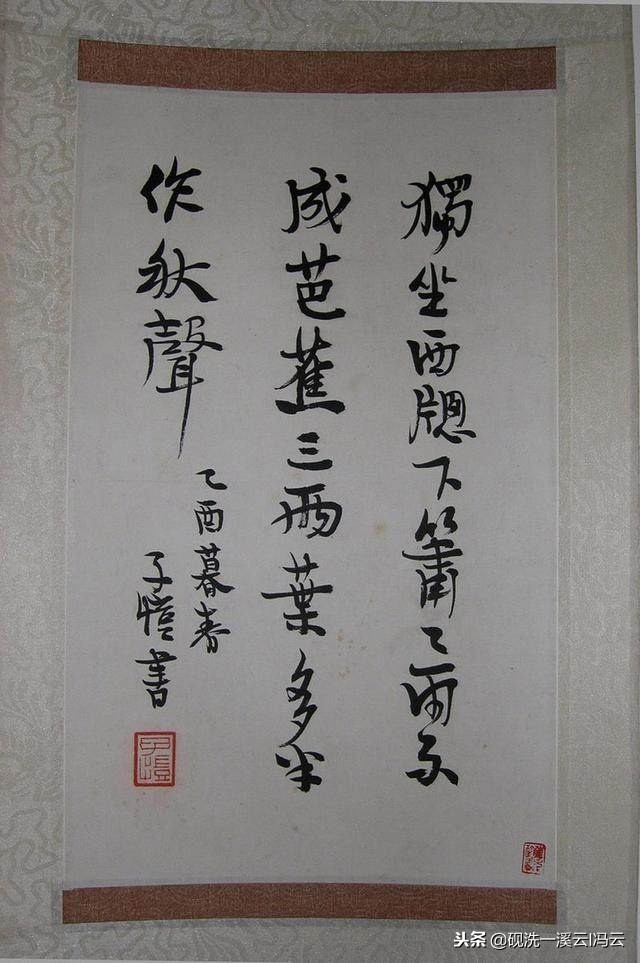 獨坐西牕下簫〻雨不
成芭蕉三兩葉多半
作秋聲
乙酉暮春
子愷書
子愷
头条 @砚洗一溪云l冯云